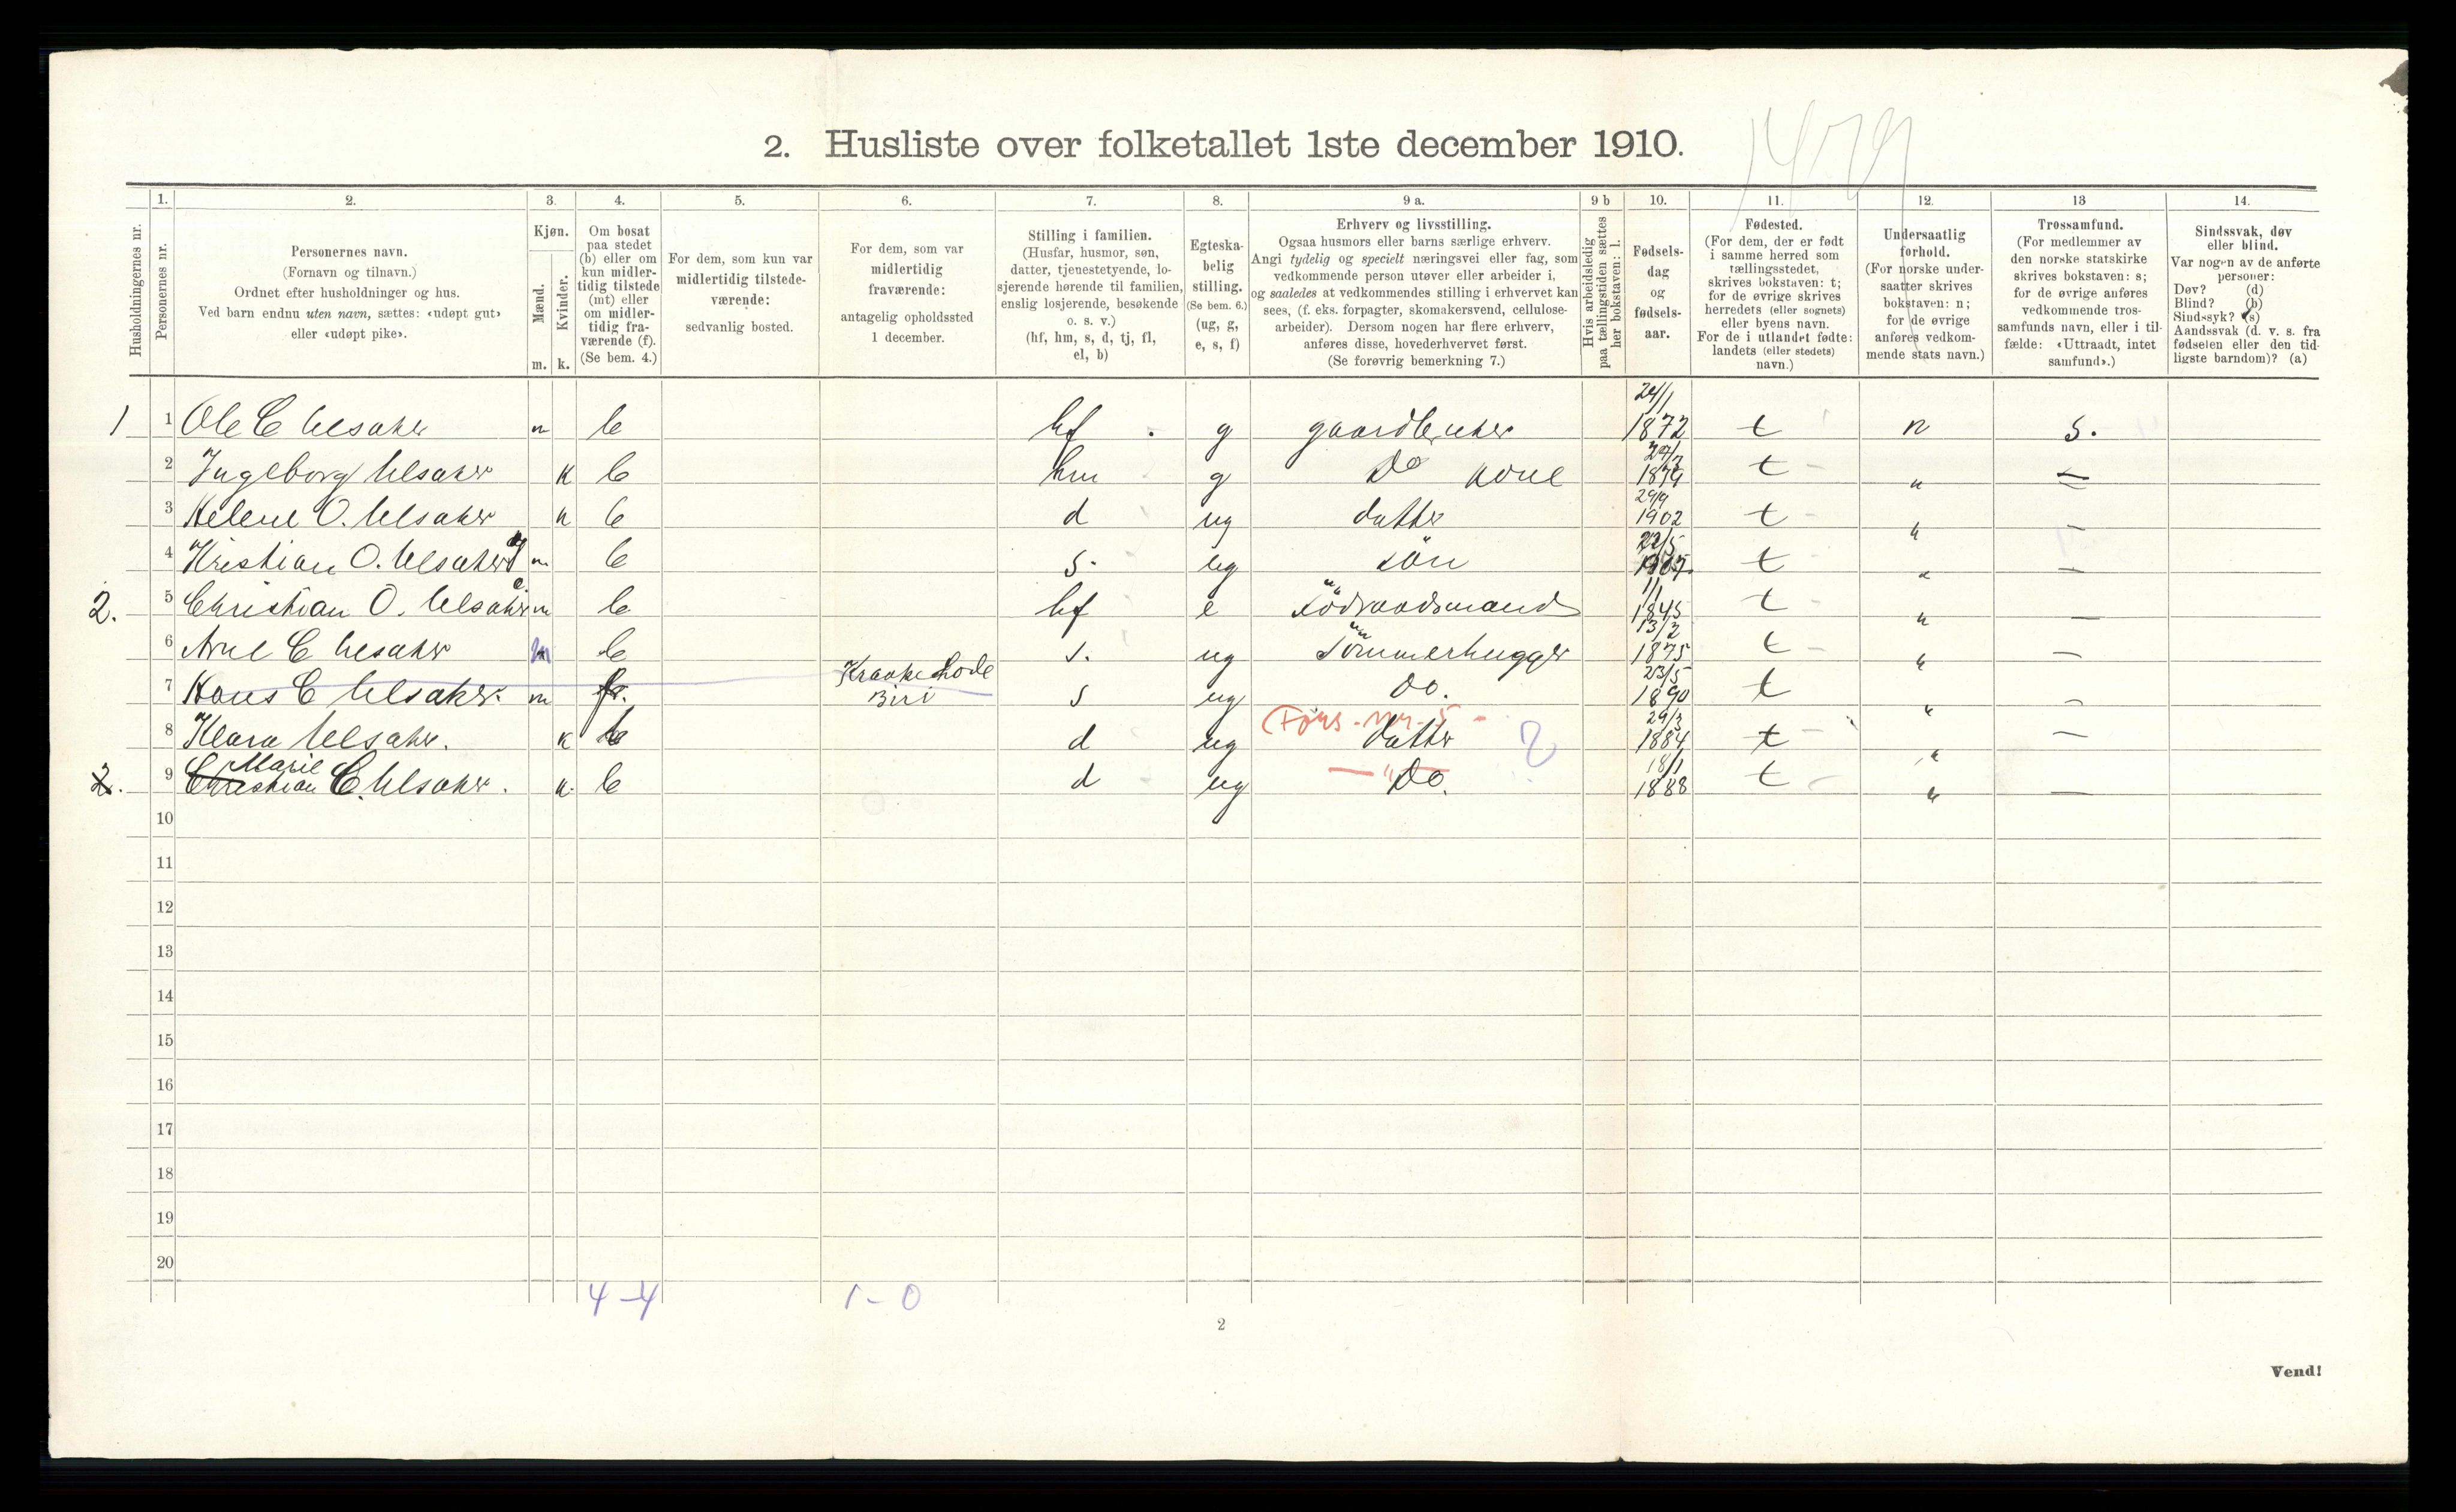 1479
2. Husliste over folketallet 1ste december 1910.
Husholdningernes nr.
1.
Personernes nr.
2.
Personernes navn.
(Fornavn og tilnavn.)
Ordnet efter husholdninger og hus.
Ved barn endnu uten navn, sættes: «udøpt gut»
eller «udøpt pike».
3.
Kjøn.
Mænd.
Kvinder.
m. k.
4.
Om bosat
paa stedet
(b) eller om
kun midler-
tidig tilstede
(mt) eller
om midler-
tidig fra-
værende (f).
(Se bem. 4.)
5.
For dem, som kun var
midlertidig tilstede-
værende:
sedvanlig bosted.
6.
For dem, som var
midlertidig
fraværende:
antagelig opholdssted
1 december.
7.
Stilling i familien.
(Husfar, husmor, søn,
datter, tjenestetyende, lo-
sjerende hørende til familien,
enslig losjerende, besøkende
o. s. v.)
(hf, hm, s, d, tj, fl,
el, b)
8.
Egteska-
belig
stilling.
(Se bem. 6.)
(ug, g,
e, s, f)
9 a.
Erhverv og livsstilling.
Ogsaa husmors eller barns særlige erhverv.
Angi tydelig og specielt næringsvei eller fag, som
vedkommende person utøver eller arbeider i,
og saaledes at vedkommendes stilling i erhvervet kan
sees, (f. eks. forpagter, skomakersvend, cellulose-
arbeider). Dersom nogen har flere erhverv,
anføres disse, hovederhvervet først.
(Se forøvrig bemerkning 7.)
9 b
Hvis arbeidsledig
paa tællingstiden sættes
her bokstaven: l.
10.
Fødsels-
dag
og
fødsels-
aar.
11.
Fødested.
(For dem, der er født
i samme herred som
tællingsstedet,
skrives bokstaven: t;
for de øvrige skrives
herredets (eller sognets)
eller byens navn.
For de i utlandet fødte:
landets (eller stedets)
navn.)
12.
Undersaatlig
forhold.
(For norske under-
saatter skrives
bokstaven: n;
for de øvrige
anføres vedkom-
mende stats navn.)
13
Trossamfund.
(For medlemmer av
den norske statskirke
skrives bokstaven: s;
for de øvrige anføres
vedkommende tros-
samfunds navn, eller i til-
fælde: «Uttraadt, intet
samfund».)
14.
Sindssvak, døv
eller blind.
Var nogen av de anførte
personer:
Døv? (d)
Blind? (b)
Sindssyk? (s)
Aandssvak (d. v. s. fra
fødselen eller den tid-
ligste barndom)? (a)
1 1 Ole C Ulsaker m b hf g gaardbruker 24/1 1872 t n s.
2 Ingeborg Ulsaker k b hm g Do kone 1879 t " —
3 Helene O. Ulsaker k b d ug datter 29/9 1902 t " —
4 Kristian O. Ulsaker m b s. ug sön 22/5 1907 t " —
2. 5 Christian O. Ulsaker m b hf e Födraadsmand 1/1 1845 t " —
6 Arne C Ulsaker m b s. ug Tömmerhugger 13/2 1875 t " —
7 Hans C Ulsaker. m f. Biri s ug Do. 23/5 1890 t " —
(Förs. nr. 5
8 Klara Ulsaker. k b d ug datter 29/3 1884 t " —
2. 9 Christian Marie C. Ulsaker. k. b d ug Do. 18/1 1888 t " —
10
11
12
13
14
15
16
17
18
19
20
4 - 4 1 - 0
2
Vend!